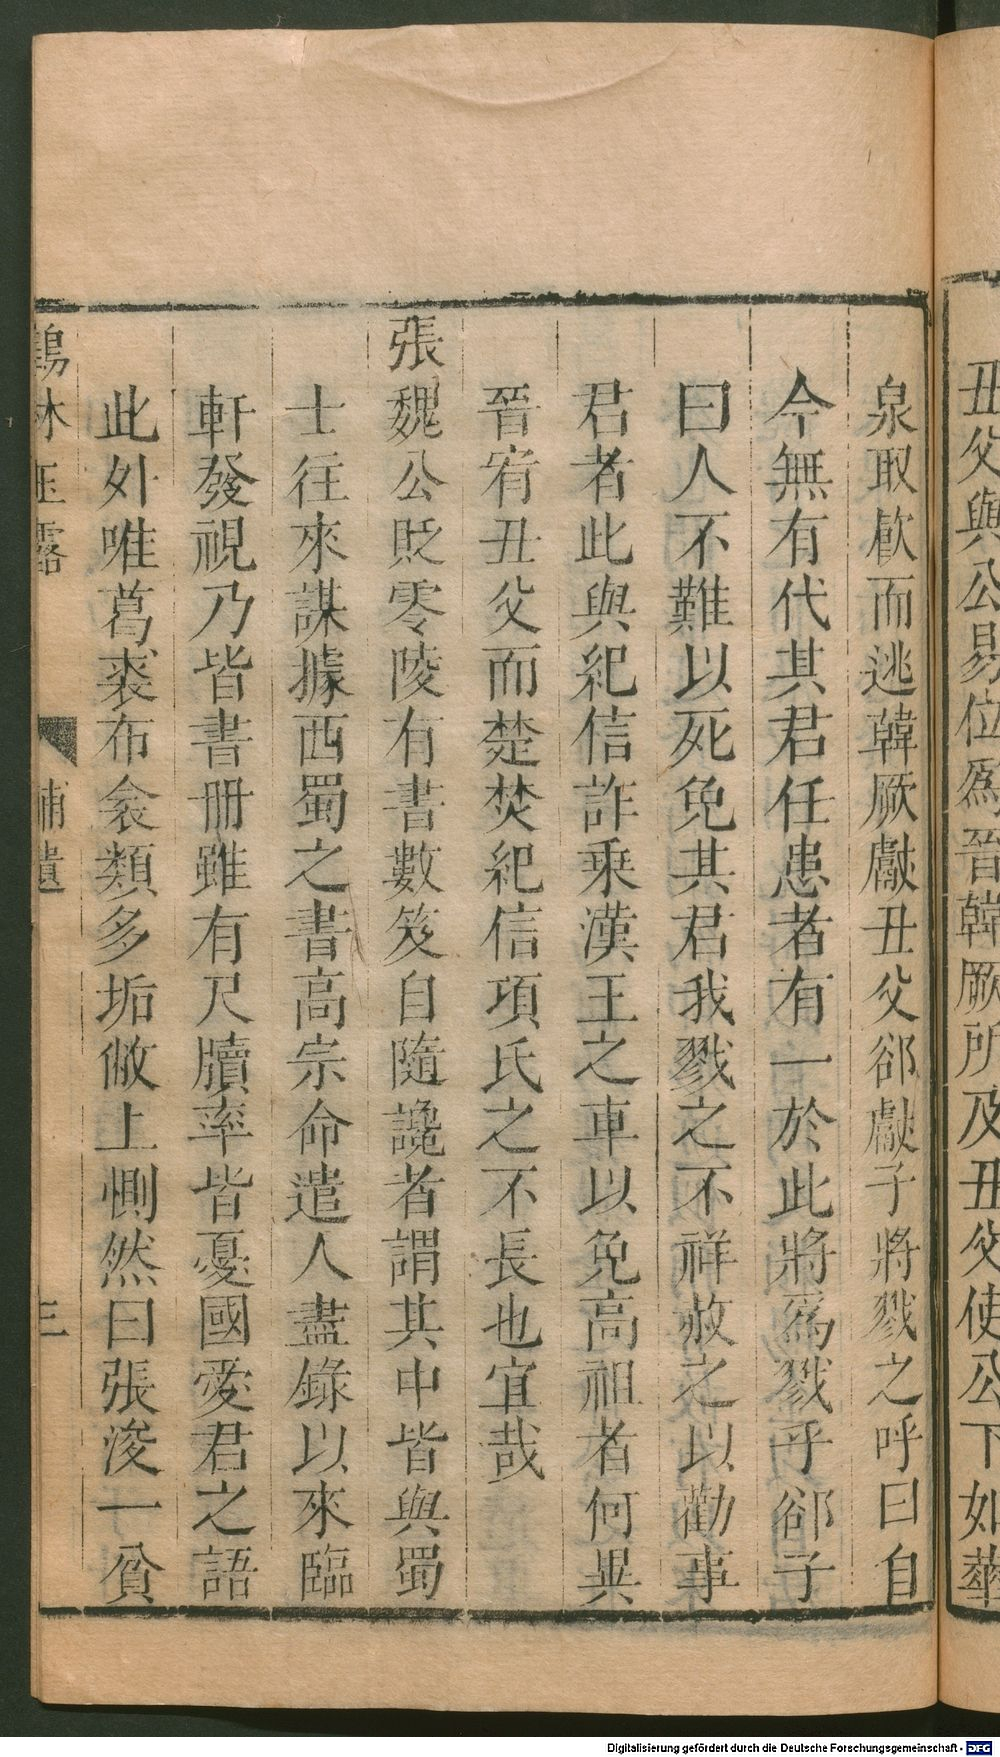 丑父與公易位爲晉韓厥所及丑父使公下如華
泉取飮而逃韓厥獻丑父郤獻子將戮之呼曰自
今無有代其君任患者有一於此將爲戮乎郤子
曰人不難以死免其君我戮之不祥赦之以勸事
君者此與紀信詐乘漢王之車以免高祖者何異
晉宥丑父而楚焚紀信項氏之不長也宜哉
張魏公貶零陵有書數笈自隨讒者謂其中皆與蜀
士往來謀據西蜀之書高宗命遣人盡錄以來臨
軒發視乃皆書冊雖有尺牘率皆憂國愛君之語
此外唯葛裘布衾類多垢敝上惻然曰張浚一貧
鶴林玉露
補遺
三
Digitalisierung gefördert durch die Deutsche Forschungsgemeinschaft - DFG